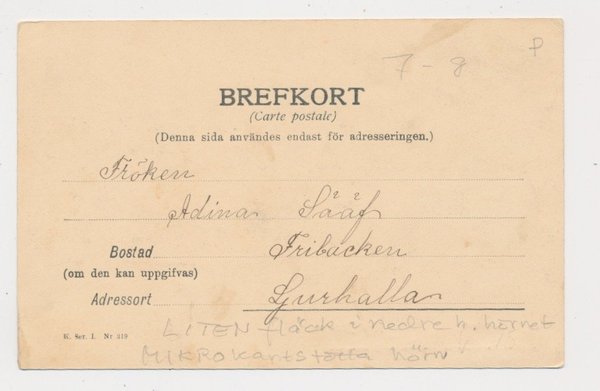 7-8
P
BREFKORT
(Carte postale)
(Denna sida användes endast för adresseringen.)
Fröken
Adina Sääf
Bostad Fribäcken
(om den kan uppgifvas)
Adressort Ljurhalla
LITEN fläck i nedre h. hörnet
K. Ser. I. Nr 219
MIKROkantstötta hörn